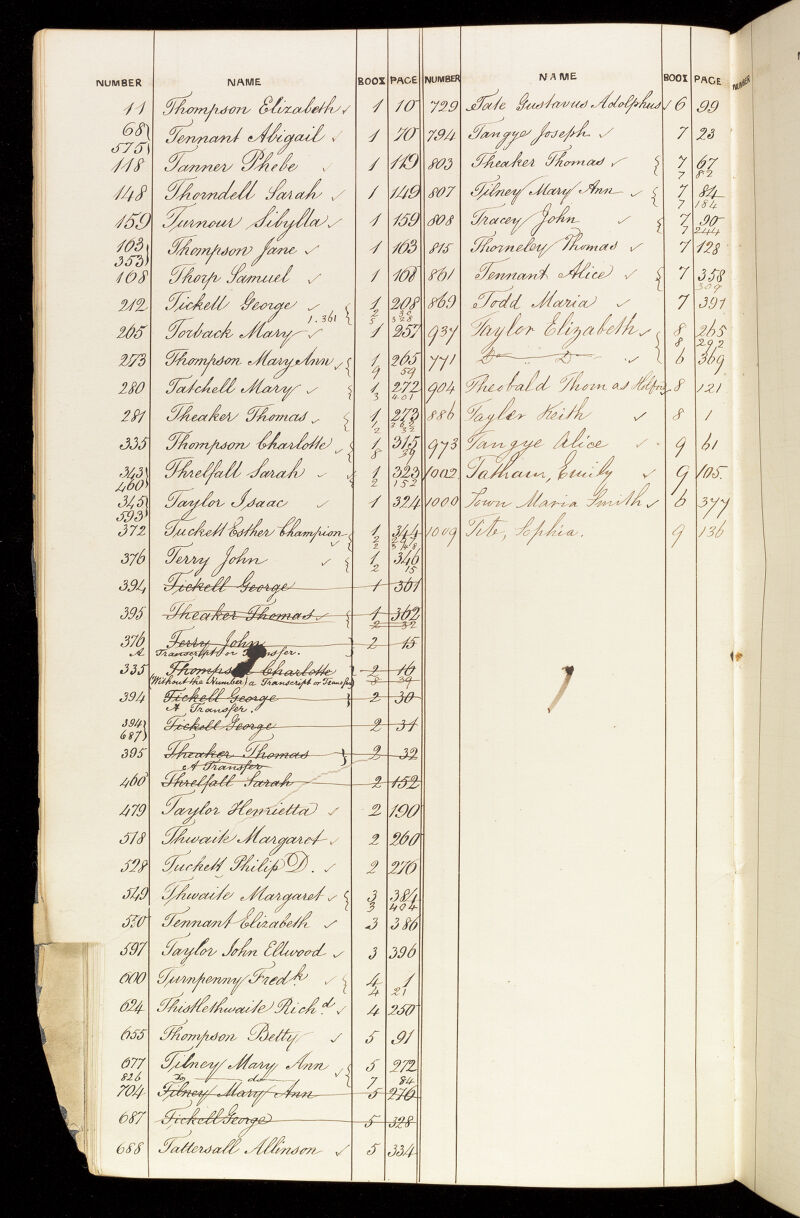 NUMBER NAME BOOK PAGE
11 Thompson Elizabeth ✓ 1 10
68
575 Tennant Abigail ✓ 1 70
118 Tanner Phebe ✓ 1 119
148 Thorndell Sarah ✓ 1 149
159 Turnour Sibylla ✓ 1 159
163
353 Thompson Jane ✓ 1 163
168 Thorp Samuel ✓ 1 168
212 Tickell George ✓ 1 208
1.361 2 30
5 328
265 Torback Mary ✓ 1 257
273 Thompson Mary Ann ✓ 1 265
9 59
280 Tatchell Mary ✓ 1 272
3 401
281 Theaker Thomas ✓ 1 273
1 362
2 32
335 Thompson Charlotte ✓ 1 315
8 39
343
460 Threlfall Sarah ✓ 1 323
2 152
345
593 Taylor Isaac ✓ 1 324
372 Tuckett Esther Champion ✓ 1 344
2 348
376 Terry John ✓ 1 346
2 15
394 Tickell George 1 361
395 Theaker Thomas ✓ 1 362
2 32
376 Terry John 2 15
A Transcript or
335 Charlotte 2 16
(Without the Number) a Transcript or Transfer 8 39
394 Tickell George 2 30
A Transfer.
394
687 Tickell George 2 31
395 Theaker Thomas 2 32
A Transfer
460 Threlfall Sarah 2 152
479 Taylor Henrietta ✓ 2 190
518 Thwaite Margaret ✓ 2 260
528 Tuckett Philip D. ✓ 2 276
549 Thwaite Margaret ✓ 3 384
3 404
550 Tennant Elizabeth ✓ 3 386
597 Taylor John Ellwood ✓ 3 396
600 Turnpenny Fredk ✓ 4 1
4 21
624 Thistlethwaite Richd ✓ 4 250
655 Thompson Betty ✓ 5 91
677 Tilney Mary Ann ✓ 5 272
826 Do do 7 84
704 Tilney Mary Ann 5 276
687 Tickell George 5 328
688 Tattersall Allinson ✓ 5 334
NUMBER NAME BOOK PAGE
729 Tate Gustavus Adolphus ✓ 6 99
794 Tangye Joseph ✓ 7 23
803 Theaker Thomas ✓ 7 67
7 82
807 Tilney Mary Ann ✓ 7 84
7 184
808 Tracey John ✓ 7 90
7 244
815 Thorneley Thomas ✓ 7 128
861 Tennant Alice ✓ 7 358
309
869 Todd Maria ✓ 7 391
937 Taylor Elizabeth ✓ 8 265
8 292
771 Do D ✓ 6 369
904 Theobald Thomas 8 121
886 Taylor Keith ✓ 8 1
973 Tangye Alice ✓ 9 61
1002 Tatham, Emily ✓ 9 105.
1000 Town Maria Smith ✓ 6 377
1009 Tite, Sophia. 9 136
NUMBER